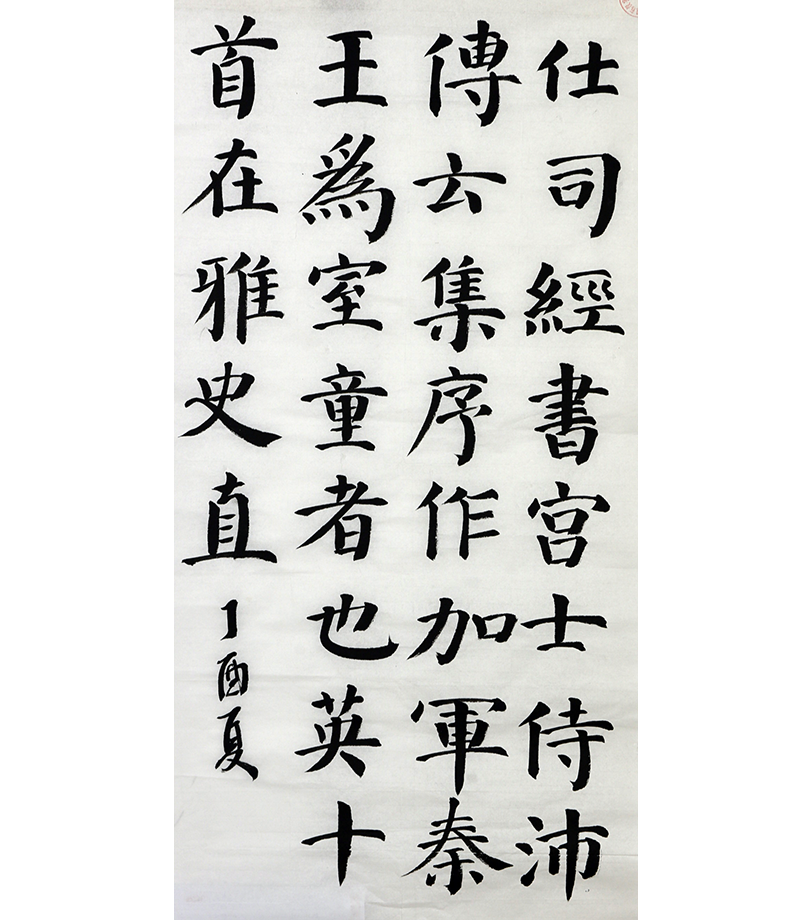 仕司經書宫士侍沛
傳云集序作加軍秦
王為室童者也英十
首在雅史直
丁酉夏